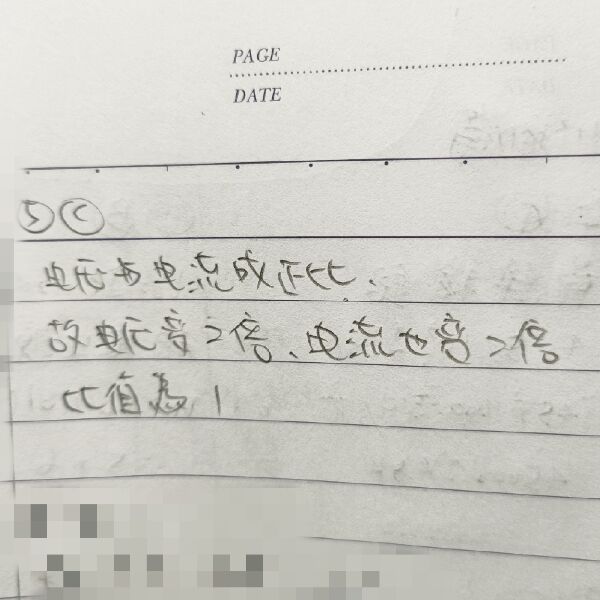 PAGE
DATE
5 C
电压与电流成正比.
故电压变2倍、电流也变2倍
比值為1